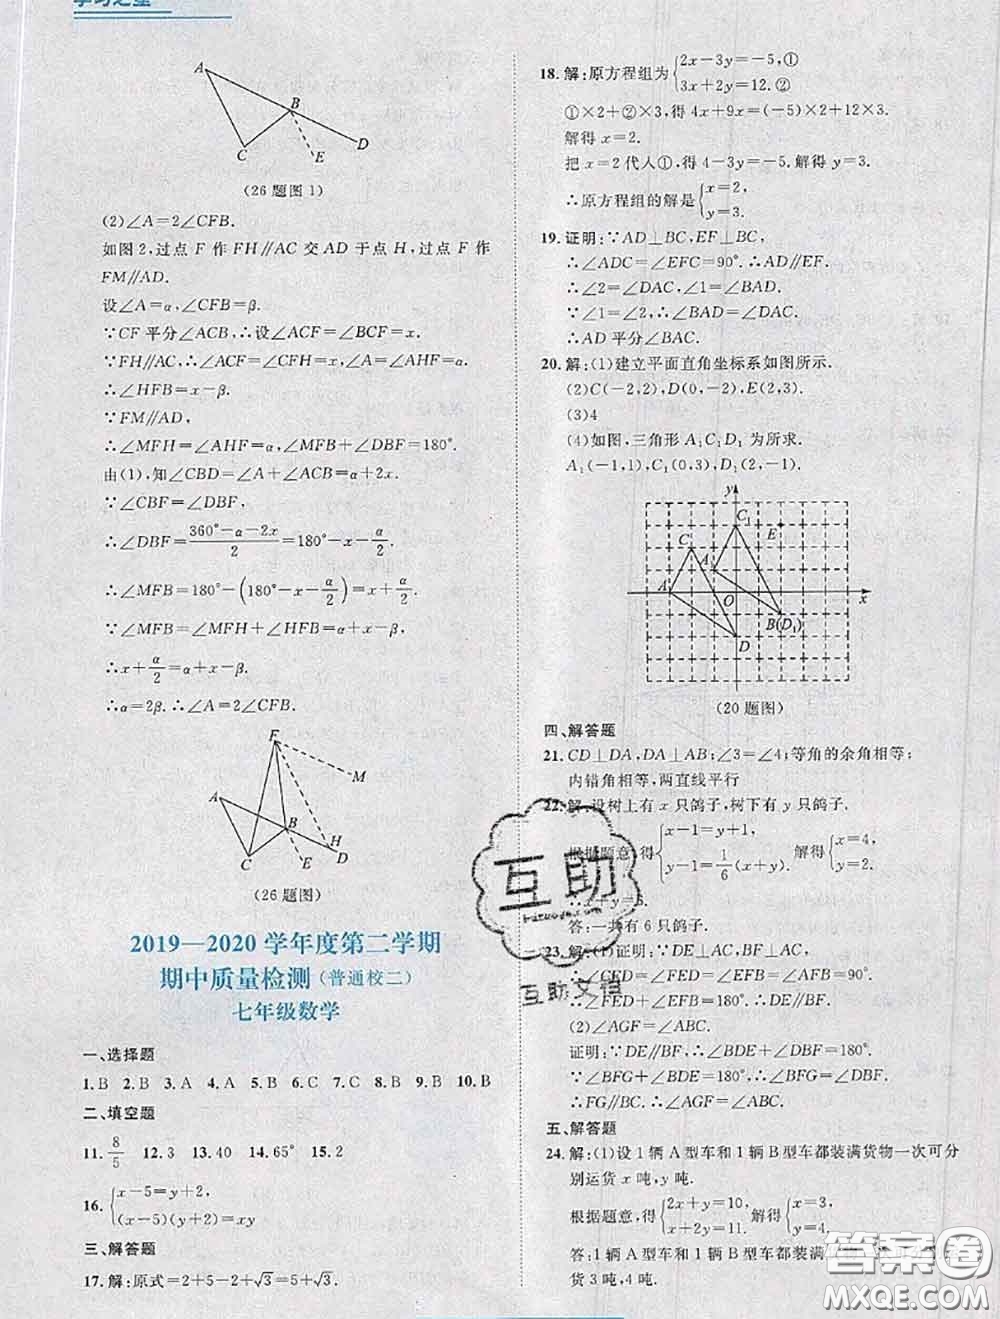 学习之星
A
B
C
E
D
(26题图1)
(2)∠A=2∠CFB.
如图2,过点F作FH∥AC交AD于点H,过点F作
FM∥AD.
设∠A=α,∠CFB=β.
∵CF平分∠ACB,∴设∠ACF=∠BCF=x.
∵FH∥AC,∴∠CFH=∠ACF=x,∠A=∠AHF=α.
∴∠HFB=x-β.
∵FM∥AD,
∴∠MFH=∠AHF=α,∠MFB+∠DBF=180°.
由(1),知∠CBD=∠A+∠ACB=α+2x.
∵∠CBF=∠DBF,
∴∠DBF=(360°-α-2x)/2=180°-x-α/2.
∴∠MFB=180°-(180°-x-α/2)=x+α/2.
∵∠MFB=∠MFH+∠HFB=α+x-β,
∴x+α/2=α+x-β.
∴α=2β.∴∠A=2∠CFB.
F
M
A
B
H
C
E
D
(26题图)
2019—2020学年度第二学期
期中质量检测(普通校二)
七年级数学
一、选择题
1.B 2.B 3.A 4.A 5.B 6.C 7.C 8.B 9.B 10.B
二、填空题
11.8/5 12.3 13.40 14.65° 15.2
16.{x-5=y+2,
(x-5)(y+2)=xy
三、解答题
17.解:原式=2+5-2+√3=5+√3.
18.解:原方程组为{2x-3y=-5,①
3x+2y=12.②
①×2+②×3,得4x+9x=(-5)×2+12×3.
解得x=2.
把x=2代人①,得4-3y=-5.解得y=3.
∴原方程组的解是{x=2,
y=3.
19.证明:∵AD⊥BC,EF⊥BC,
∴∠ADC=∠EFC=90°.∴AD∥EF.
∴∠2=∠DAC,∠1=∠BAD.
∵∠1=∠2,∴∠BAD=∠DAC.
∴AD平分∠BAC.
20.解:(1)建立平面直角坐标系如图所示.
(2)C(-2,2),D(0,-2),E(2,3).
(3)4
(4)如图,三角形A₁C₁D₁为所求.
A₁(-1,1),C₁(0,3),D₁(2,-1).
y
C₁
E
C
A₁
A
O
x
B(D₁)
D
(20题图)
四、解答题
21.CD⊥DA,DA⊥AB;∠3=∠4;等角的余角相等;
内错角相等,两直线平行
22.解:设树上有x只鸽子,树下有y只鸽子.
根据题意,得{x-1=y+1,
y-1=1/6(x+y). 解得{x=4,
y=2.
∴x+y=6.
答:一共有6只鸽子.
23.(1)证明:∵DE⊥AC,BF⊥AC,
∴∠FED=∠EFB=∠AFB=90°.
∴∠FED+∠EFB=180°.∴DE∥BF.
(2)∠AGF=∠ABC.
证明:∵DE∥BF,∴∠BDE+∠DBF=180°.
∵∠BFG+∠BDE=180°,∴∠BFG=∠DBF.
∴FG∥BC.∴∠AGF=∠ABC.
五、解答题
24.解:(1)设1辆A型车和1辆B型车都装满货物一次可分
别运货x吨,y吨.
根据题意,得{2x+y=10,
x+2y=11. 解得{x=3,
y=4.
答:1辆A型车和1辆B型车都装满
货3吨,4吨.
互助
互助文档
答案圈
MXQE.COM